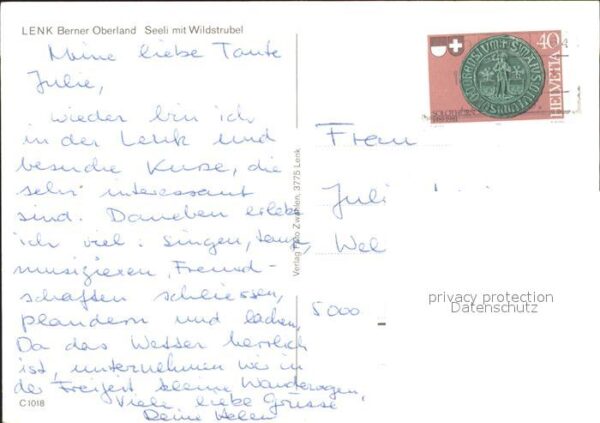 LENK Berner Oberland Seeli mit Wildstrubel
Meine liebe Tante
Julie,
wieder bin ich
in der Lenk und
besuche Kurse, die
sehr interessant
sind. Daneben erlebe
ich viel: singen, tanz,
musizieren, Freund-
schaften schliessen,
plaudern und lachen.
Da das Wetter herrlich
ist, unternehmen wir in
der Freizeit kleine Wanderungen,
Viele liebe Grüsse
Deine Helen
C 1018
Verlag Foto Zwahlen, 3775 Lenk
40
HELVETIA
SOLOTHURN
1481-1981
Frau
Juli
Wel
5000
privacy protection
Datenschutz